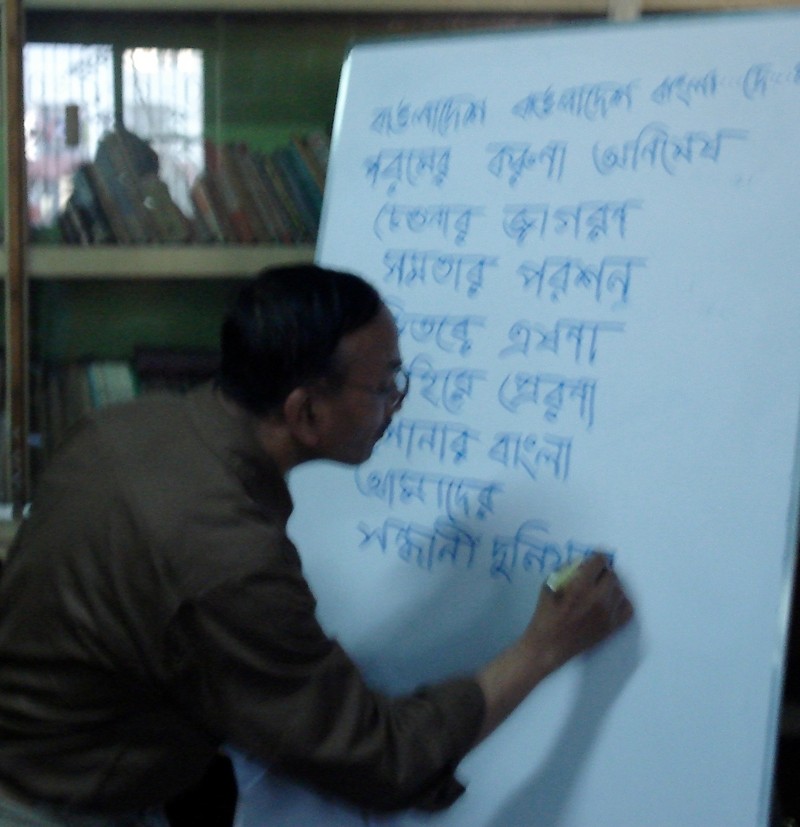 বাঙলাদেশ বাঙলাদেশ বাংলা দে
পরমের করুণা অনিমেষ
চেতনার জাগরণ
সমতার পরশন
ভিতরে এষণা
বাহিরে প্রেরণা
সোনার বাংলা
আমাদের
সন্ধানী